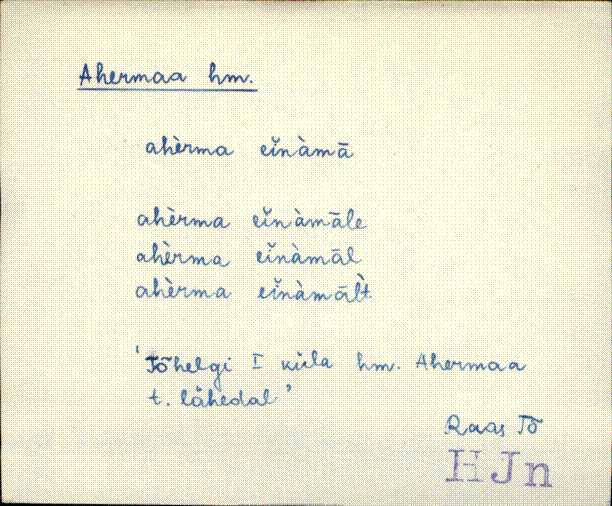 Ahermaa hm.
ahèrma eĭnàmā
ahèrma eĭnàmāle
ahèrma eĭnàmāl
ahèrma eĭnàmāl̀t
'Tõhelgi I küla hm. Ahermaa
t. lähedal'
Raas Tõ
HJn